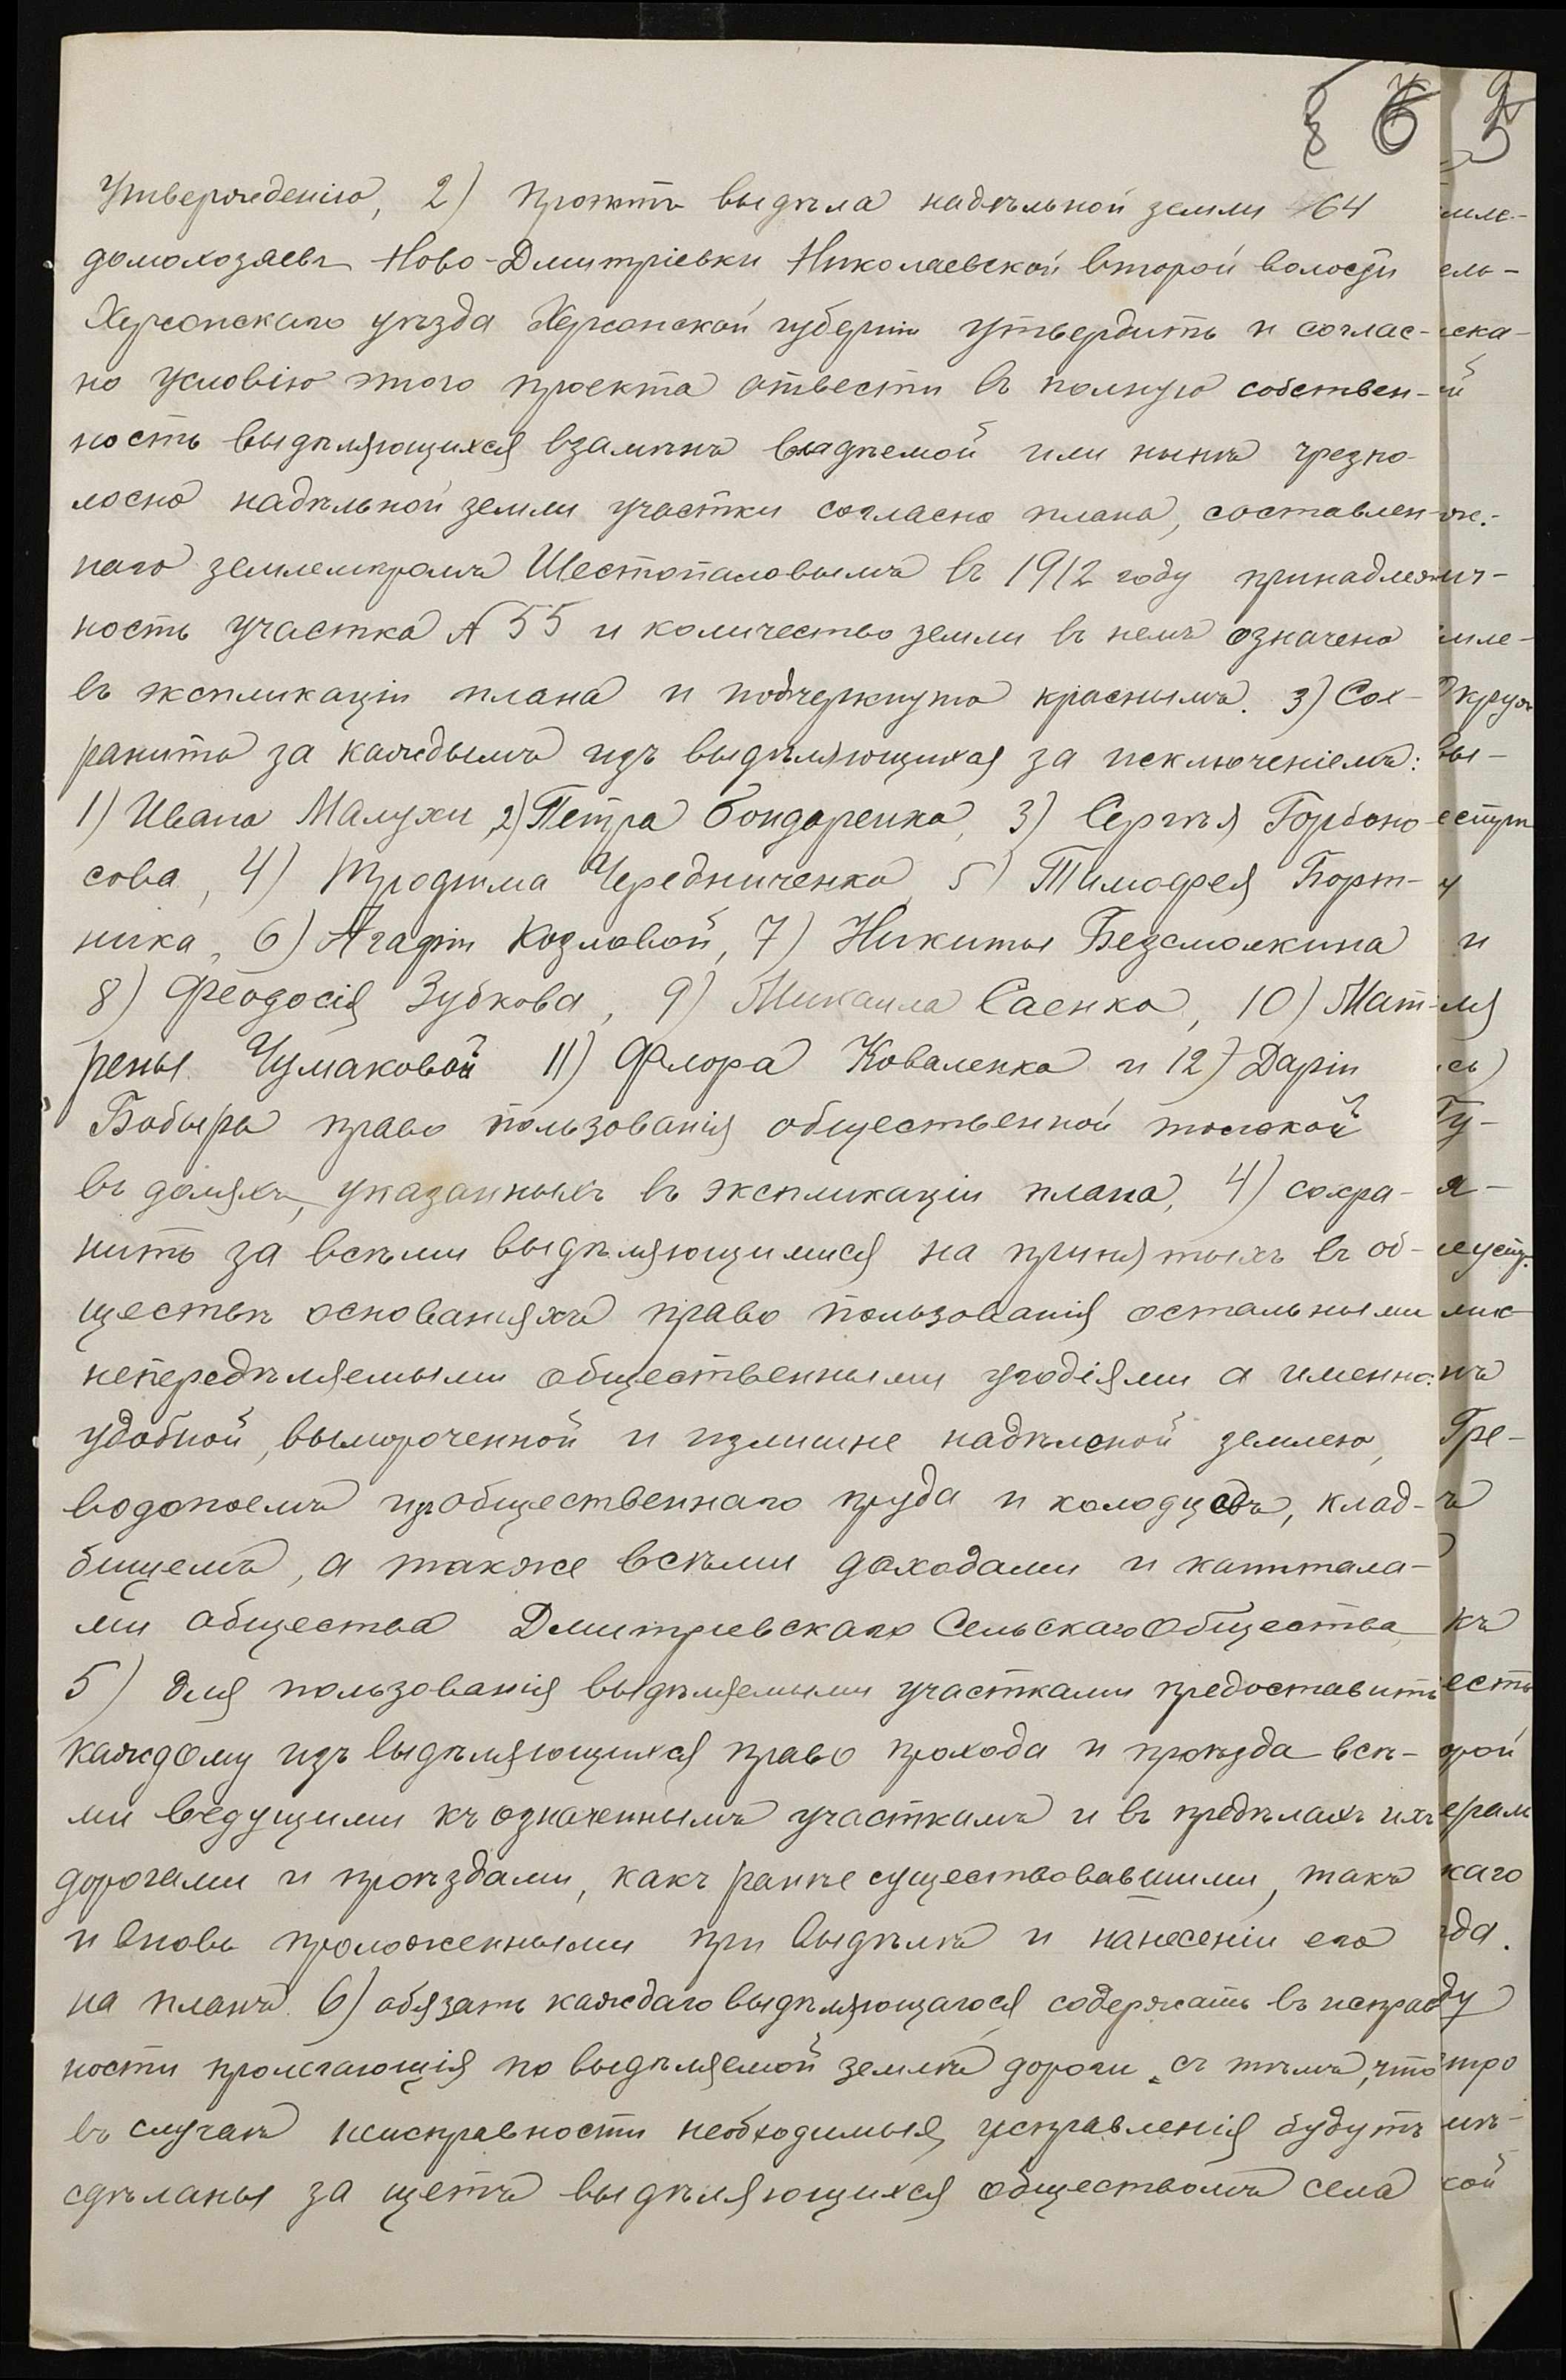 утвержденію, 2) проэктъ выдѣла надѣльной земли 64
домохозяевъ Ново-Дмитріевки Николаевской второй волости
Херсонскаго уѣзда Херсонской губерніи утвердить и соглас-
но условію этого проекта отвести въ полную собствен-
ность выдѣляющихся взамѣнъ владѣемой ими нынѣ чрезпо-
лосно надѣльной земли участки согласно плана, составлен-
наго землемѣромъ Шестопаловымъ въ 1912 году принадлеж-
ность участка № 55 и количество земли въ немъ означено
въ экспликаціи плана и подчеркнуто краснымъ. 3) Сох-
ранить за каждымъ изъ выдѣляющихся за исключеніемъ:
1) Ивана Малухи, 2) Петра Бондаренко, 3) Сергѣя Горбоно-
сова, 4) Трофима Чередниченко, 5) Тимофея Борт-
ника, 6) Агафіи Козловой, 7) Никиты Безсмолкина
8) Феодосія Зубкова, 9) Михаила Саенко, 10) Мат-
рены Чумаковой 11) Флора Коваленко и 12) Даріи
Бобырь право пользованія общественной толокой
въ доляхъ, указанныхъ въ экспликаціи плана, 4) сохра-
нить за всѣми выдѣляющимися на принятыхъ въ об-
ществѣ основаніяхъ право пользованія остальными
непередѣляемыми общественными угодіями а именно:
удобной, вымороченной и излишне надѣленой землею,
водопоемъ изъ общественнаго пруда и колодцевъ, клад-
бищемъ, а также всѣми доходами и капитала-
ми общества Дмитріевскаго Сельскаго Общества
5) для пользованія выдѣляемыми участками предоставить
каждому изъ выдѣляющихся право прохода и проѣзда всѣ-
ми ведущими къ означеннымъ участкамъ и въ предѣлахъ ихъ
дорогами и проѣздами, какъ ранѣе существовавшими, такъ
и вновь проложенными при выдѣлѣ и нанесеніи его
на планъ. 6) обязать каждаго выдѣляющагося содержать въ исправ
ности пролегающія по выдѣляемой землѣ дороги съ тѣмъ, что
въ случаѣ неисправности необходимыя исправленія будутъ
сдѣланы за щетъ выдѣляющихся обществомъ села